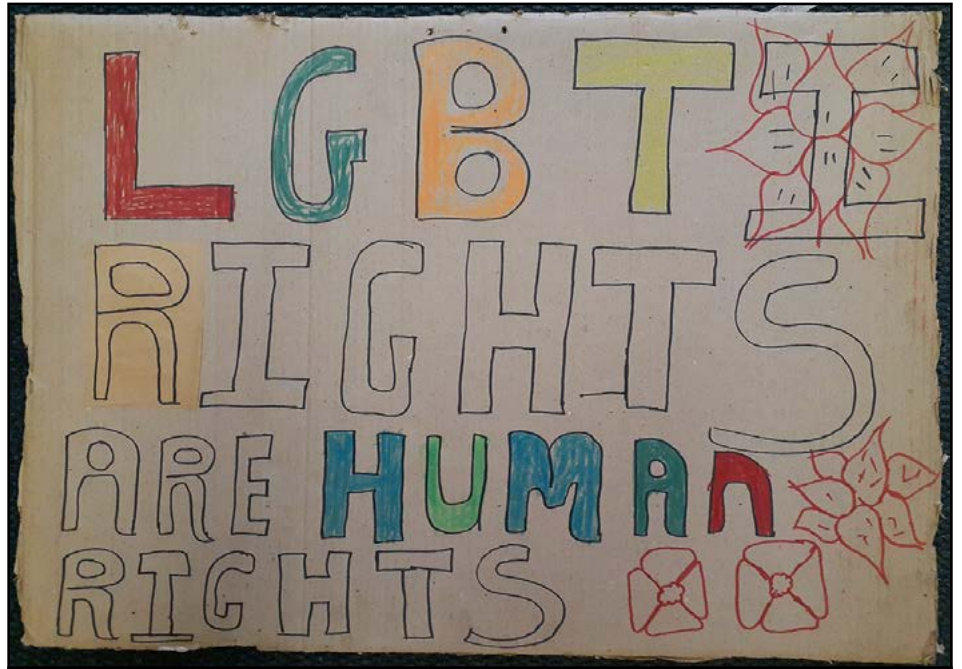 LGBTI
RIGHTS
ARE HUMAn
RIGHTS